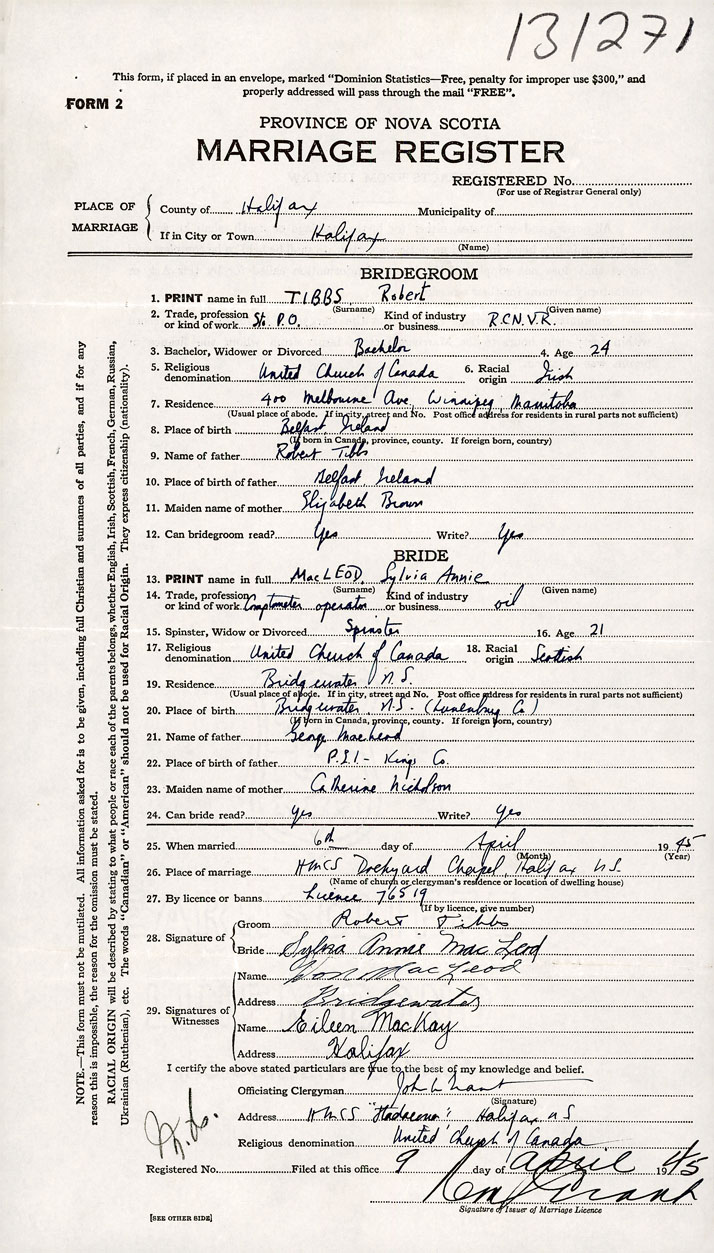 131271
This form, if placed in an envelope, marked "Dominion Statistics—Free, penalty for improper use $300," and
properly addressed will pass through the mail "FREE".
FORM 2
PROVINCE OF NOVA SCOTIA
MARRIAGE REGISTER
REGISTERED No.
(For use of Registrar General only)
PLACE OF MARRIAGE
County of Halifax Municipality of
If in City or Town Halifax
(Name)
BRIDEGROOM
1. PRINT name in full TIBBS Robert
(Surname) (Given name)
2. Trade, profession or kind of work St. P.O. Kind of industry or business R.C.N.V.R.
3. Bachelor, Widower or Divorced Bachelor 4. Age 24
5. Religious denomination United Church of Canada 6. Racial origin Irish
7. Residence 400 Melbourne Ave, Winnipeg, Manitoba
(Usual place of abode. If in city, street and No. Post office address for residents in rural parts not sufficient)
8. Place of birth Belfast, Ireland
(If born in Canada, province, county. If foreign born, country)
9. Name of father Robert Tibbs
10. Place of birth of father Belfast, Ireland
11. Maiden name of mother Elizabeth Brown
12. Can bridegroom read? Yes Write? Yes
BRIDE
13. PRINT name in full MacLEOD, Sylvia Annie
(Surname) (Given name)
14. Trade, profession or kind of work Comptometer operator Kind of industry or business oil
15. Spinster, Widow or Divorced Spinster 16. Age 21
17. Religious denomination United Church of Canada 18. Racial origin Scottish
19. Residence Bridgewater, N.S.
(Usual place of abode. If in city, street and No. Post office address for residents in rural parts not sufficient)
20. Place of birth Bridgewater, N.S. (Lunenburg Co.)
(If born in Canada, province, county. If foreign born, country)
21. Name of father George MacLeod
22. Place of birth of father P.E.I - Kings Co.
23. Maiden name of mother Catherine Nicholson
24. Can bride read? Yes Write? Yes
25. When married 6th day of April 1945
(Month) (Year)
26. Place of marriage HMCS Dockyard Chapel, Halifax N.S.
(Name of church or clergyman's residence or location of dwelling house)
27. By licence or banns Licence 76519
(If by licence, give number)
28. Signature of
Groom Robert Tibbs
Bride Sylvia Annie MacLeod
29. Signatures of Witnesses
Name MacLeod
Address Bridgewater
Name Eileen MacKay
Address Halifax
I certify the above stated particulars are true to the best of my knowledge and belief.
Officiating Clergyman John
(Signature)
Address HMCS Halifax N S
Religious denomination United Church of Canada
Registered No. Filed at this office 9 day of April 1945
Grant
Signature of Issuer of Marriage Licence
[SEE OTHER SIDE]
NOTE.—This form must not be mutilated. All information asked for is to be given, including full Christian and surnames of all parties, and if for any
reason this is impossible, the reason for the omission must be stated.
RACIAL ORIGIN will be described by stating to what people or race each of the parents belongs, whether English, Irish, Scottish, French, German, Russian,
Ukrainian (Ruthenian), etc. The words "Canadian" or "American" should not be used for Racial Origin. They express citizenship (nationality).